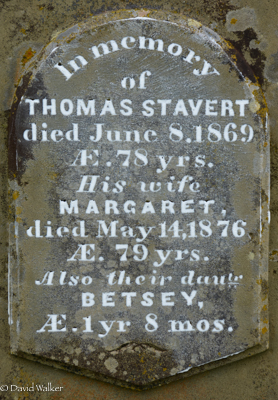 In memory
of
THOMAS STAVERT
died June 8, 1869
Æ. 78 yrs.
His wife
MARGARET,
died May 14, 1876
Æ. 79 yrs.
Also their dau'r
BETSEY,
Æ. 1 yr 8 mos.
© David Walker